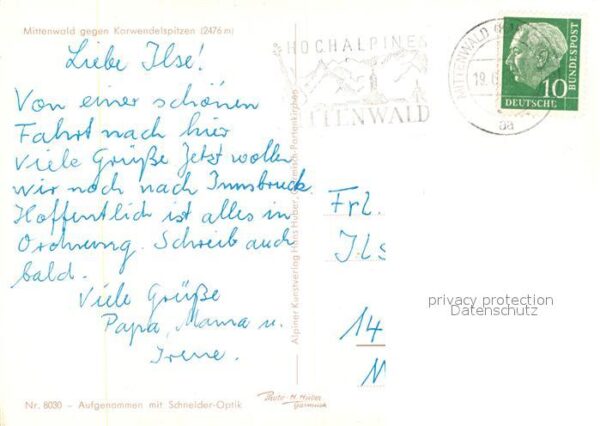 Mittenwald gegen Karwendelspitzen (2476 m)
Liebe Ilse!
Von einer schönen
Fahrt nach hier
viele Grüße Jetzt wollen
wir noch nach Innsbruck.
Hoffentlich ist alles in
Ordnung. Schreib auch
bald.
Viele Grüße
Papa, Mama u.
Irene.
Nr. 8030 - Aufgenommen mit Schneider-Optik
Alpiner Kunstverlag Hans Huber, Garmisch-Partenkirchen
Photo H. Huber
Garmisch
HOCHALPINES
MITTENWALD
MITTENWALD
19.6
da
10
DEUTSCHE
BUNDESPOST
Frl.
Ils
14
privacy protection
Datenschutz